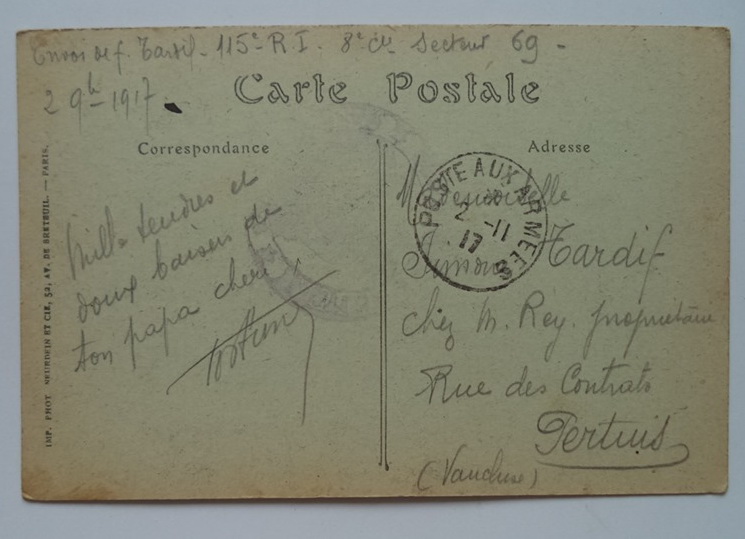 Envoi de f. Tardif - 115e R.I. 8e Cie Secteur 69 -
2 9h - 1917
Carte Postale
Correspondance
Adresse
Mille tendres et
doux baisers de
ton papa cheri
Mademoiselle
Simone Tardif
chez M. Rey. propriétaire
Rue des Contrats
Pertuis
(Vaucluse)
POSTE AUX ARMEES
2 -11
17
IMP. PHOT. NEURDEIN ET CIE, 52, AV. DE BRETEUIL. — PARIS.